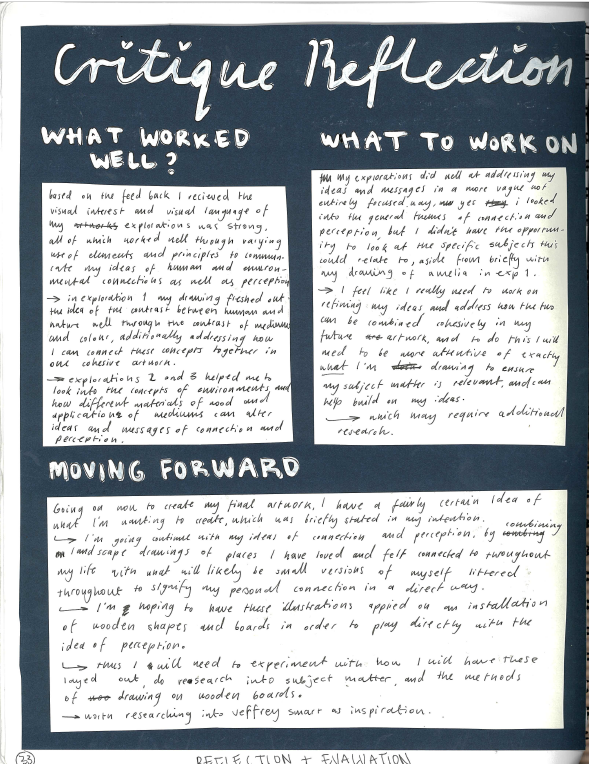 Critique Reflection
WHAT WORKED
WELL?
based on the feed back I recieved the
visual interest and visual language of
my artworks explorations was strong,
all of which worked well through varying
use of elements and principles to commun-
icate my ideas of human and environ-
mental connections as well as perception
→ in exploration 1 my drawing fleshed out
the idea of the contrast between human and
nature well through the contrast of mediums
and colour, additionally addressing how
I can connect these concepts together in
one cohesive artwork.
→ explorations 2 and 3 helped me to
look into the concepts of environments and
how different materials of wood and
applications of mediums can alter
ideas and messages of connection and
perception.
WHAT TO WORK ON
my explorations did well at addressing my
ideas and messages in a more vague not
entirely focused, way, yes they i looked
into the general themes of connection and
perception, but I didn't have the opportun-
ity to look at the specific subjects this
could relate to, aside from briefly with
my drawing of amelia in exp 1.
→ I feel like I really need to work on
refining my ideas and address how the two
can be combined cohesively in my
future artwork, and to do this I will
need to be more attentive of exactly
what I'm drawing to ensure
my subject matter is relevant, and can
help build on my ideas.
→ which may require additional
research.
MOVING FORWARD
Going on now to create my final artwork, I have a fairly certain idea of
what I'm wanting to create, which was briefly stated in my intention.
→ I'm going continue with my ideas of connection and perception, by combining
landscape drawings of places I have loved and felt connected to throughout
my life with what will likely be small versions of myself littered
throughout to signify my personal connection in a direct way.
→ I'm hoping to have these illustrations applied on an installation
of wooden shapes and boards in order to play directly with the
idea of perception.
→ thus I will need to experiment with how I will have these
layed out, do research into subject matter, and the methods
of woo drawing on wooden boards.
→ worth researching into Jeffrey smart as inspiration.
38
REFLECTION + EVALUATION